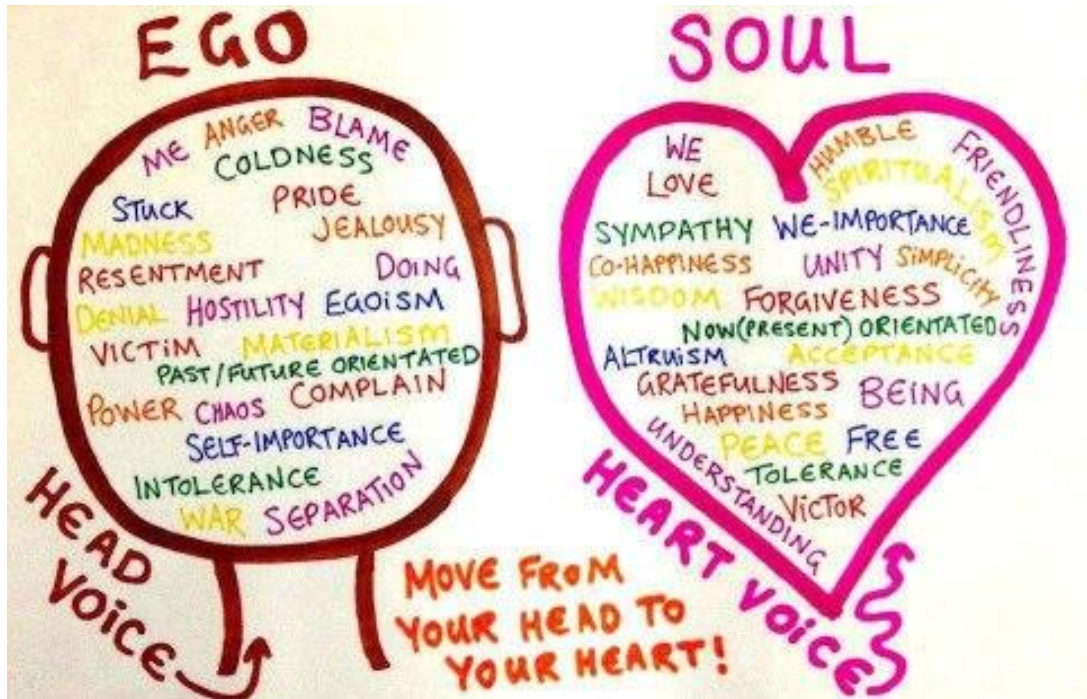 EGO
ME ANGER BLAME
COLDNESS
STUCK PRIDE
JEALOUSY
MADNESS
RESENTMENT DOING
DENIAL HOSTILITY EGOiSM
VICTiM MATERIALISM
PAST/FUTURE ORIENTATED
POWER CHAOS COMPLAIN
SELF-IMPORTANCE
INTOLERANCE
WAR SEPARATION
HEAD
VOiCE
MOVE FROM
YOUR HEAD TO
YOUR HEART!
SOUL
WE
LOVE
HUMBLE
SPIRITUALISM
FRIENDLINESS
SYMPATHY WE-IMPORTANCE
CO-HAPPINESS UNITY SiMPLICITY
WISDOM FORGIVENESS
NOW(PRESENT) ORIENTATED
ALTRUiSM ACCEPTANCE
GRATEFULNESS BEING
HAPPINESS
PEACE FREE
UNDERSTANDING
TOLERANCE
ViCTOR
HEART VOiCE